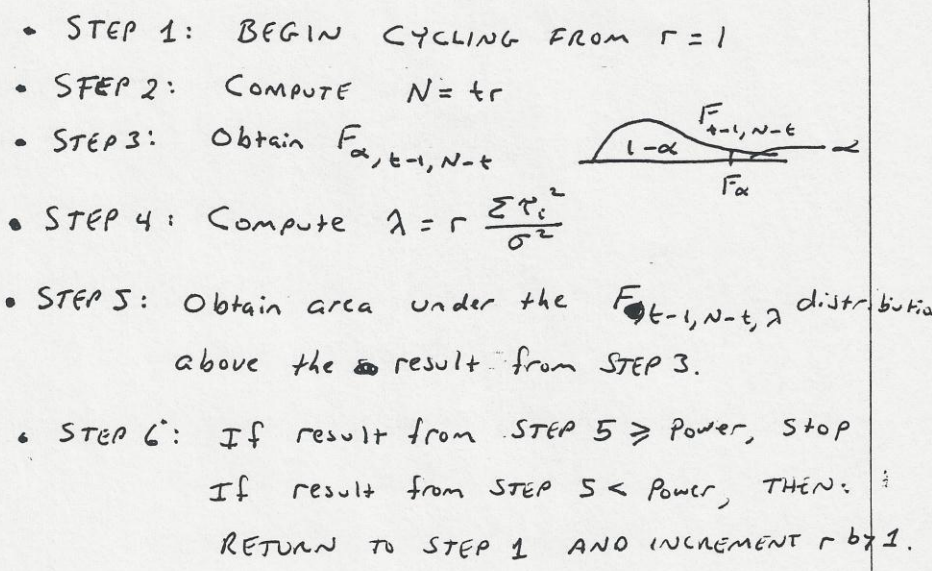 • STEP 1: BEGIN CYCLING FROM r = 1
• STEP 2: COMPUTE N = tr
• STEP 3: Obtain F α, t-1, N-t
F t-1, N-t
1-α
α
Fα
• STEP 4: Compute λ = r Σ τi² / σ²
• STEP 5: Obtain area under the F t-1, N-t, λ distributio
above the result from STEP 3.
• STEP 6: If result from STEP 5 ≥ Power, Stop
If result from STEP 5 < Power, THEN:
RETURN TO STEP 1 AND INCREMENT r by 1.